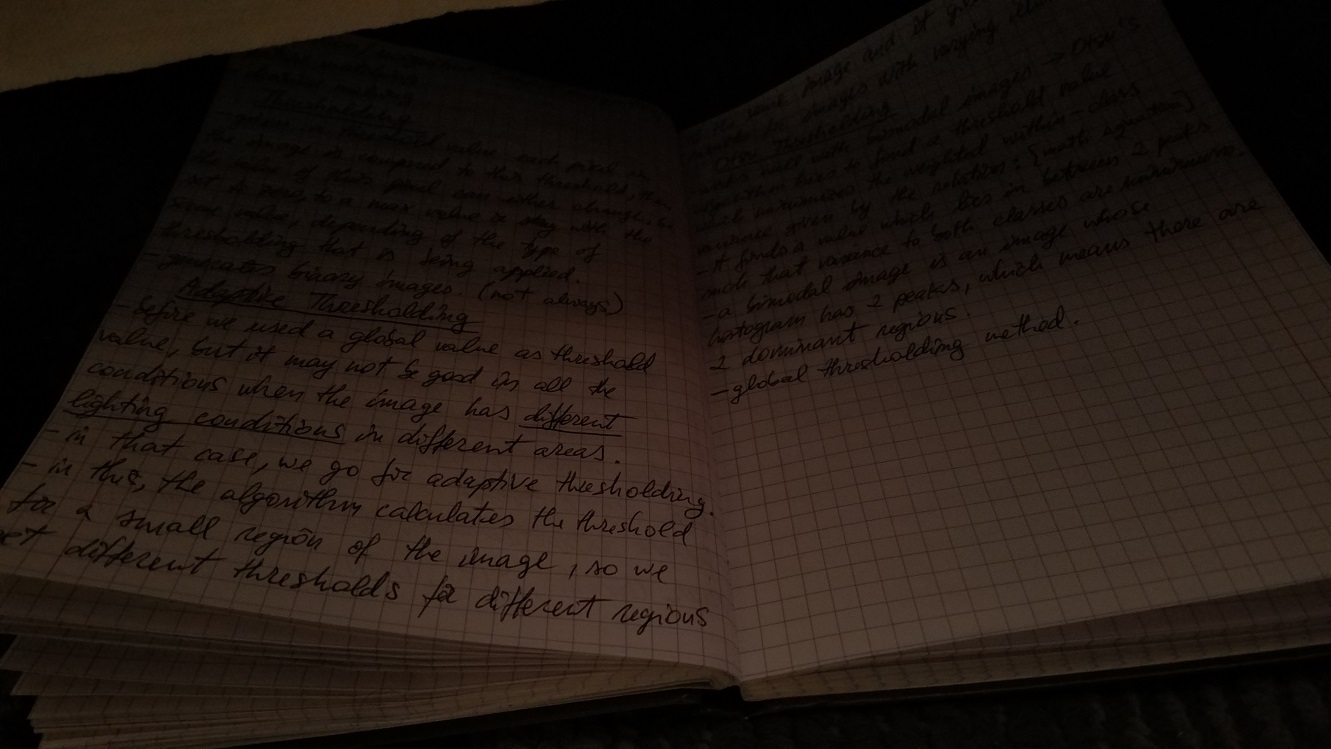 Thresholding
- given a threshold value, each pixel in
the image is compared to this threshold, the
value of this pixel can either change, be
set to zero, to a max value or stay with the
same value, depending of the type of
thresholding that is being applied.
- generates binary images. (not always)
Adaptive Thresholding
- before we used a global value as threshold
value, but it may not be good in all the
conditions when the image has different
lighting conditions in different areas.
- in that case, we go for adaptive thresholding.
- in this, the algorithm calculates the threshold
for a small region of the image, so we
different thresholds for different regions
same image and it
images with varying
Otsu Thresholding
bimodal images → Otsu's
algorithm tries to find a threshold value
which minimizes the weighted within-class
variance given by the relation: [math equation]
- it finds a value which lies in between 2 peaks
such that variance to both classes are
- a bimodal image is an image whose
histogram has 2 peaks, which means there are
2 dominant regions.
- global thresholding method.